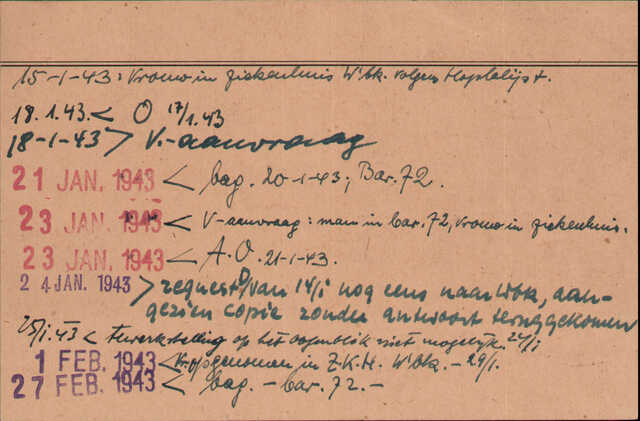 15-1-43: Vrouw in ziekenhuis W'bk. volgens Hosp.lijst.
18.1.43 < O 17/1.43
18-1-43 > V.-aanvraag
21 JAN. 1943 < bag. 20-1-43; Bar. 72.
23 JAN. 1943 < V-aanvraag: man in bar. 72, vrouw in ziekenhuis.
23 JAN. 1943 < A.O. 21-1-43.
24 JAN. 1943 > request O/van 14/1 nog eens naar Wbk, aan-
gezien copie zonder antwoord teruggekomen
25/1.43 < Tewerkstelling op het oogenblik niet mogelijk. 24/1
1 FEB. 1943 < Vr. opgenomen in Z.K.H. W'bk. - 29/1.
27 FEB. 1943 < bag. - bar. 72. -